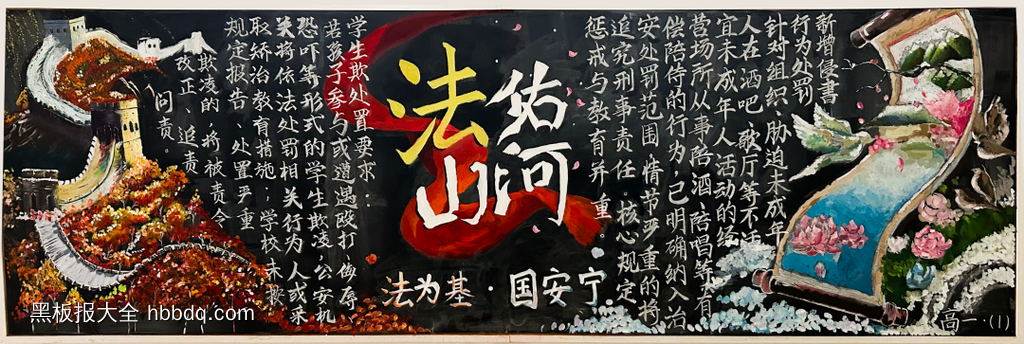 新增侵書
行为处罚
针对组织、胁迫未成年
人在酒吧、歌厅等不适
宜未成年人活动的经
营场所从事陪酒、陪唱等有
偿陪侍的行为，已明确纳入治
安处罚范围，情节严重的将
追究刑事责任。核心规定
惩戒与教育并重
法佑
山河
法为基·国安宁
学生欺处置要求：
若孩子参与或遭遇殴打、侮辱、
恐吓等形式的学生欺凌，公安机
关将依法处罚相关行为人或采
取矫治教育措施；学校未按
规定报告、处置严重
欺凌的，将被责令
改正、追责
问责。
高一·(1)
黑板报大全 hbbdq.com